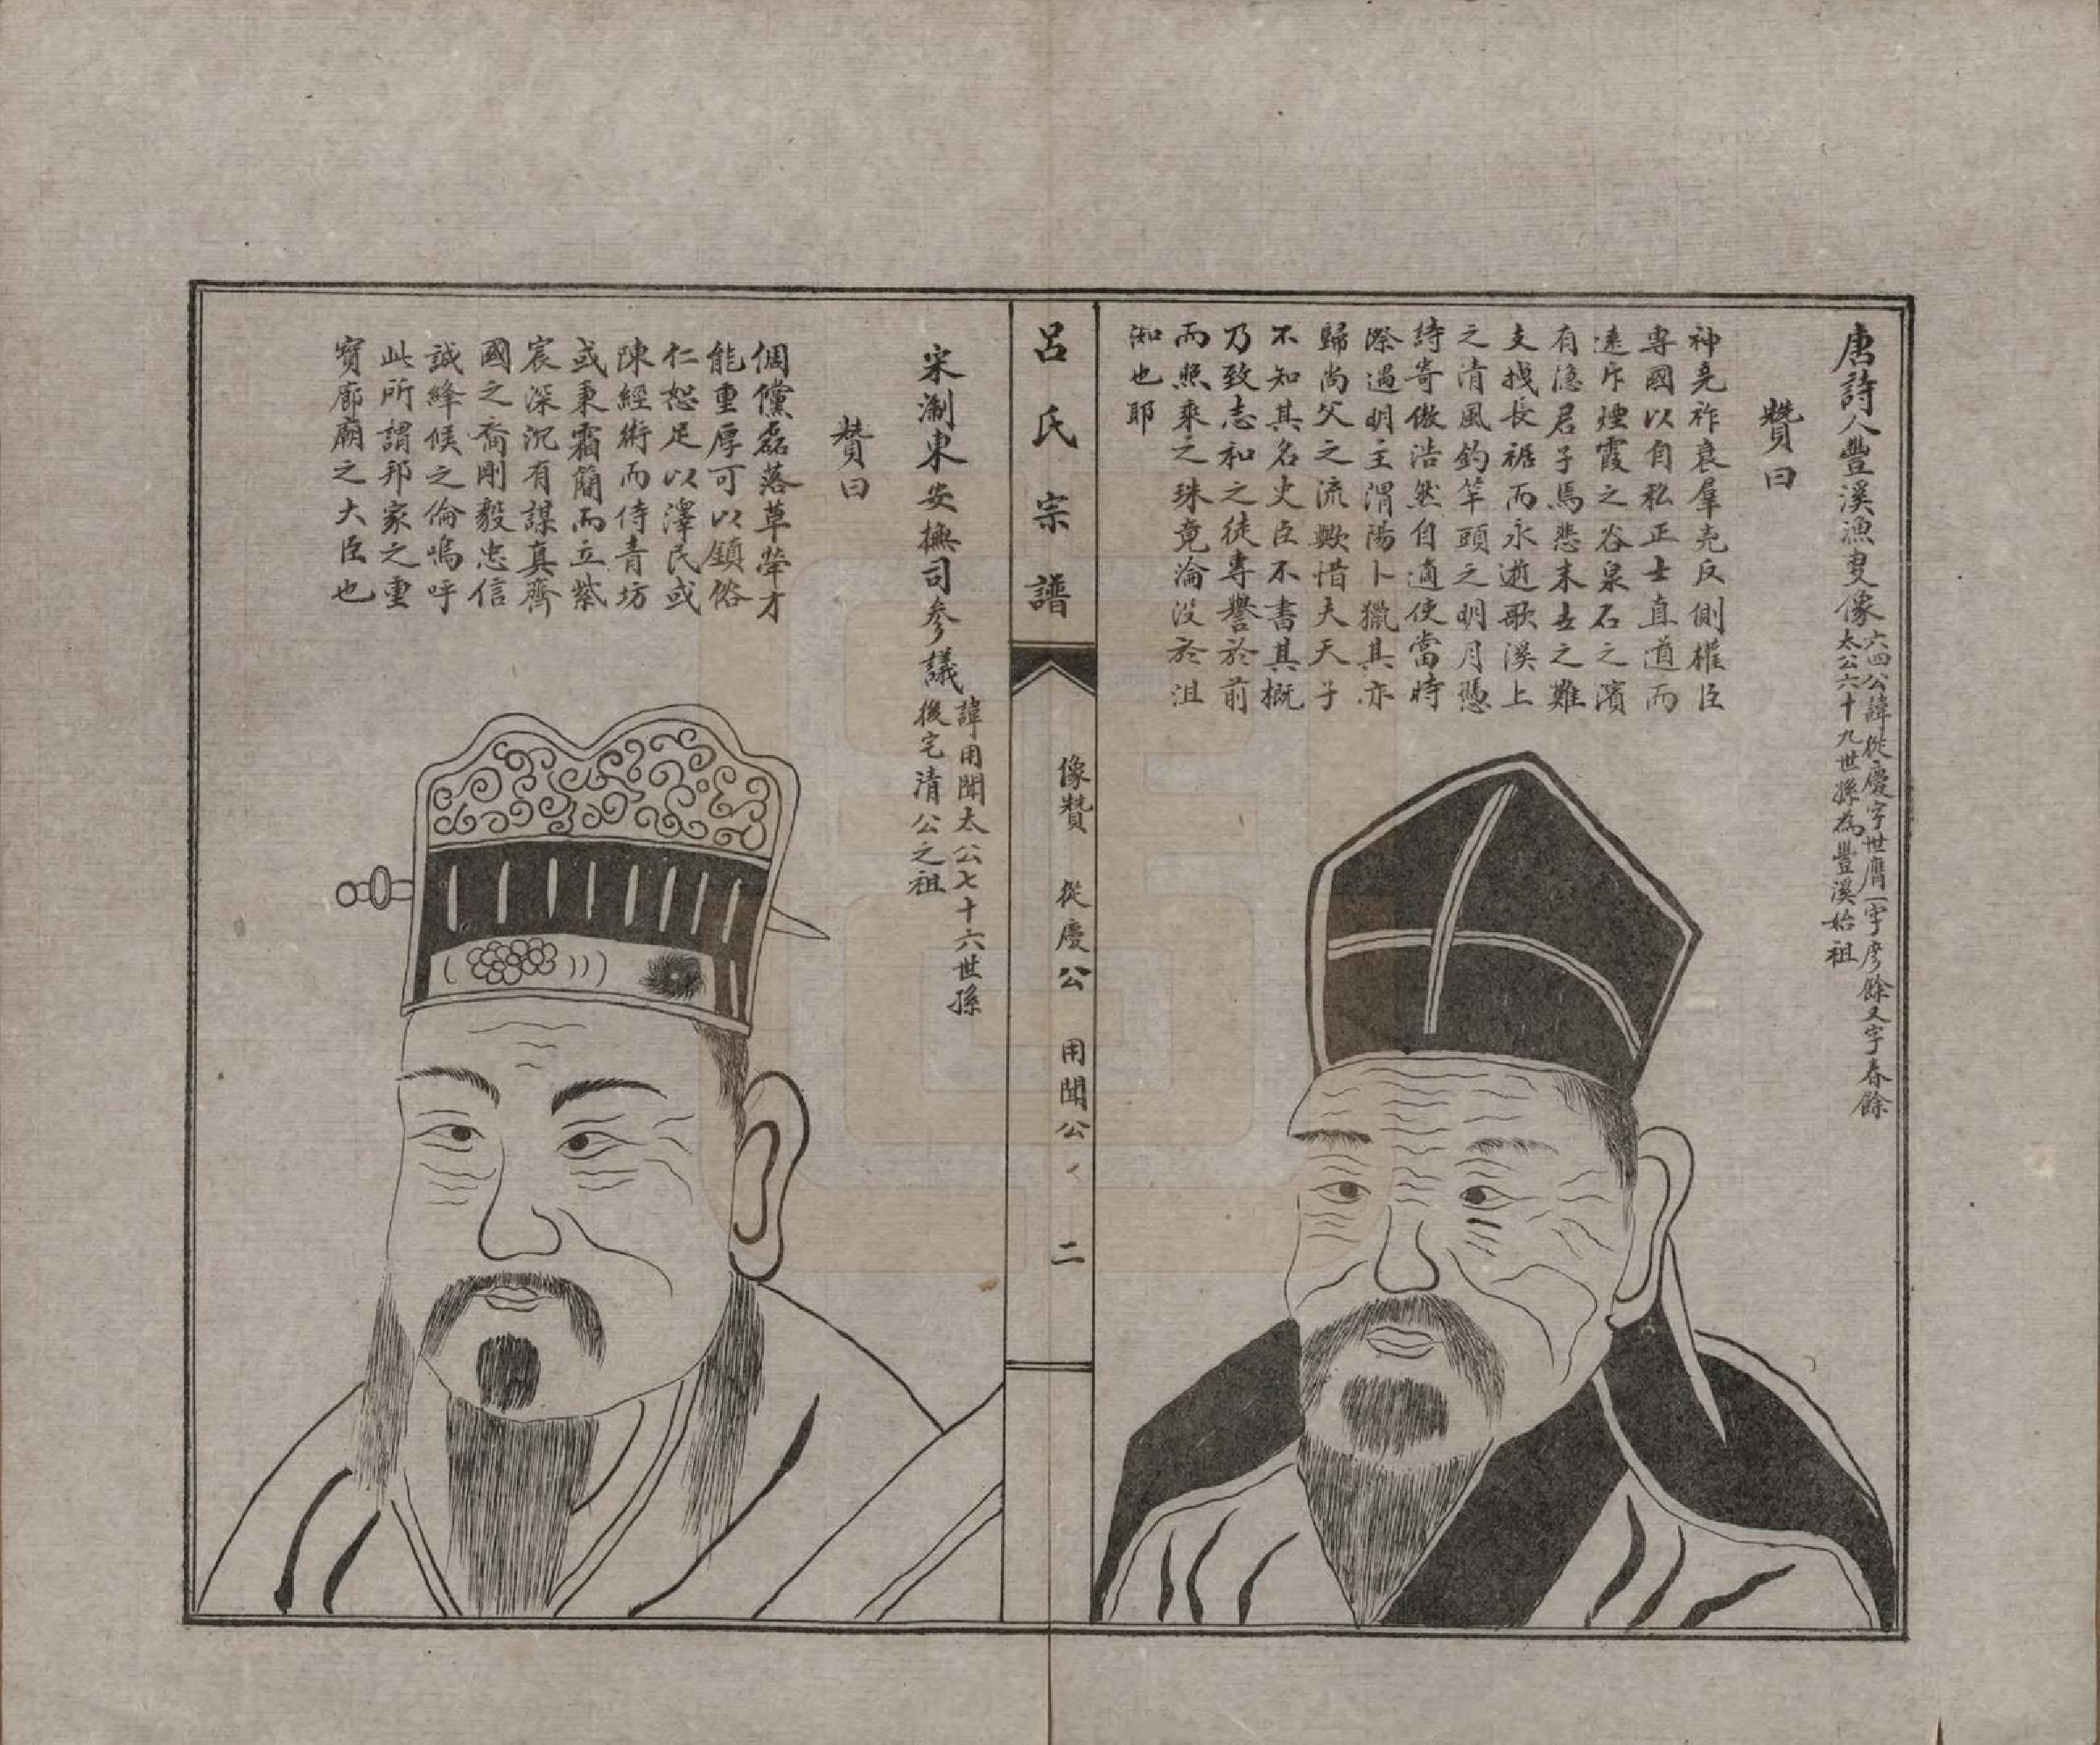 唐詩人豐溪漁叟像
六四公諱從慶字世膺一字彥餘又字春餘
太公六十九世孫為豐溪始祖
贊曰
神堯祚衰羣兇反側權臣
專國以自私正士直道而
遠斥煙霞之谷泉石之濱
有隱君子焉悲末去之難
支拽長裾而永逝歌溪上
之清風釣竿頭之明月憑
詩寄傲浩然自適使當時
際遇明主渭陽卜獵其亦
歸尚父之流歟惜夫天子
不知其名史臣不書其概
乃致志和之徒專譽於前
而照乘之珠竟淪沒於沮
洳也耶
呂氏宗譜
像贊 從慶公 用聞公 二
宋淛東安撫司參議
諱用聞太公七十六世孫
後宅清公之祖
贊曰
倜儻磊落草犖才
能重厚可以鎮俗
仁恕足以澤民或
陳經術而侍青坊
或秉霜簡而立紫
宸深沉有謀真齊
國之裔剛毅忠信
誠絳候之倫嗚呼
此所謂邦家之重
寶廊廟之大臣也